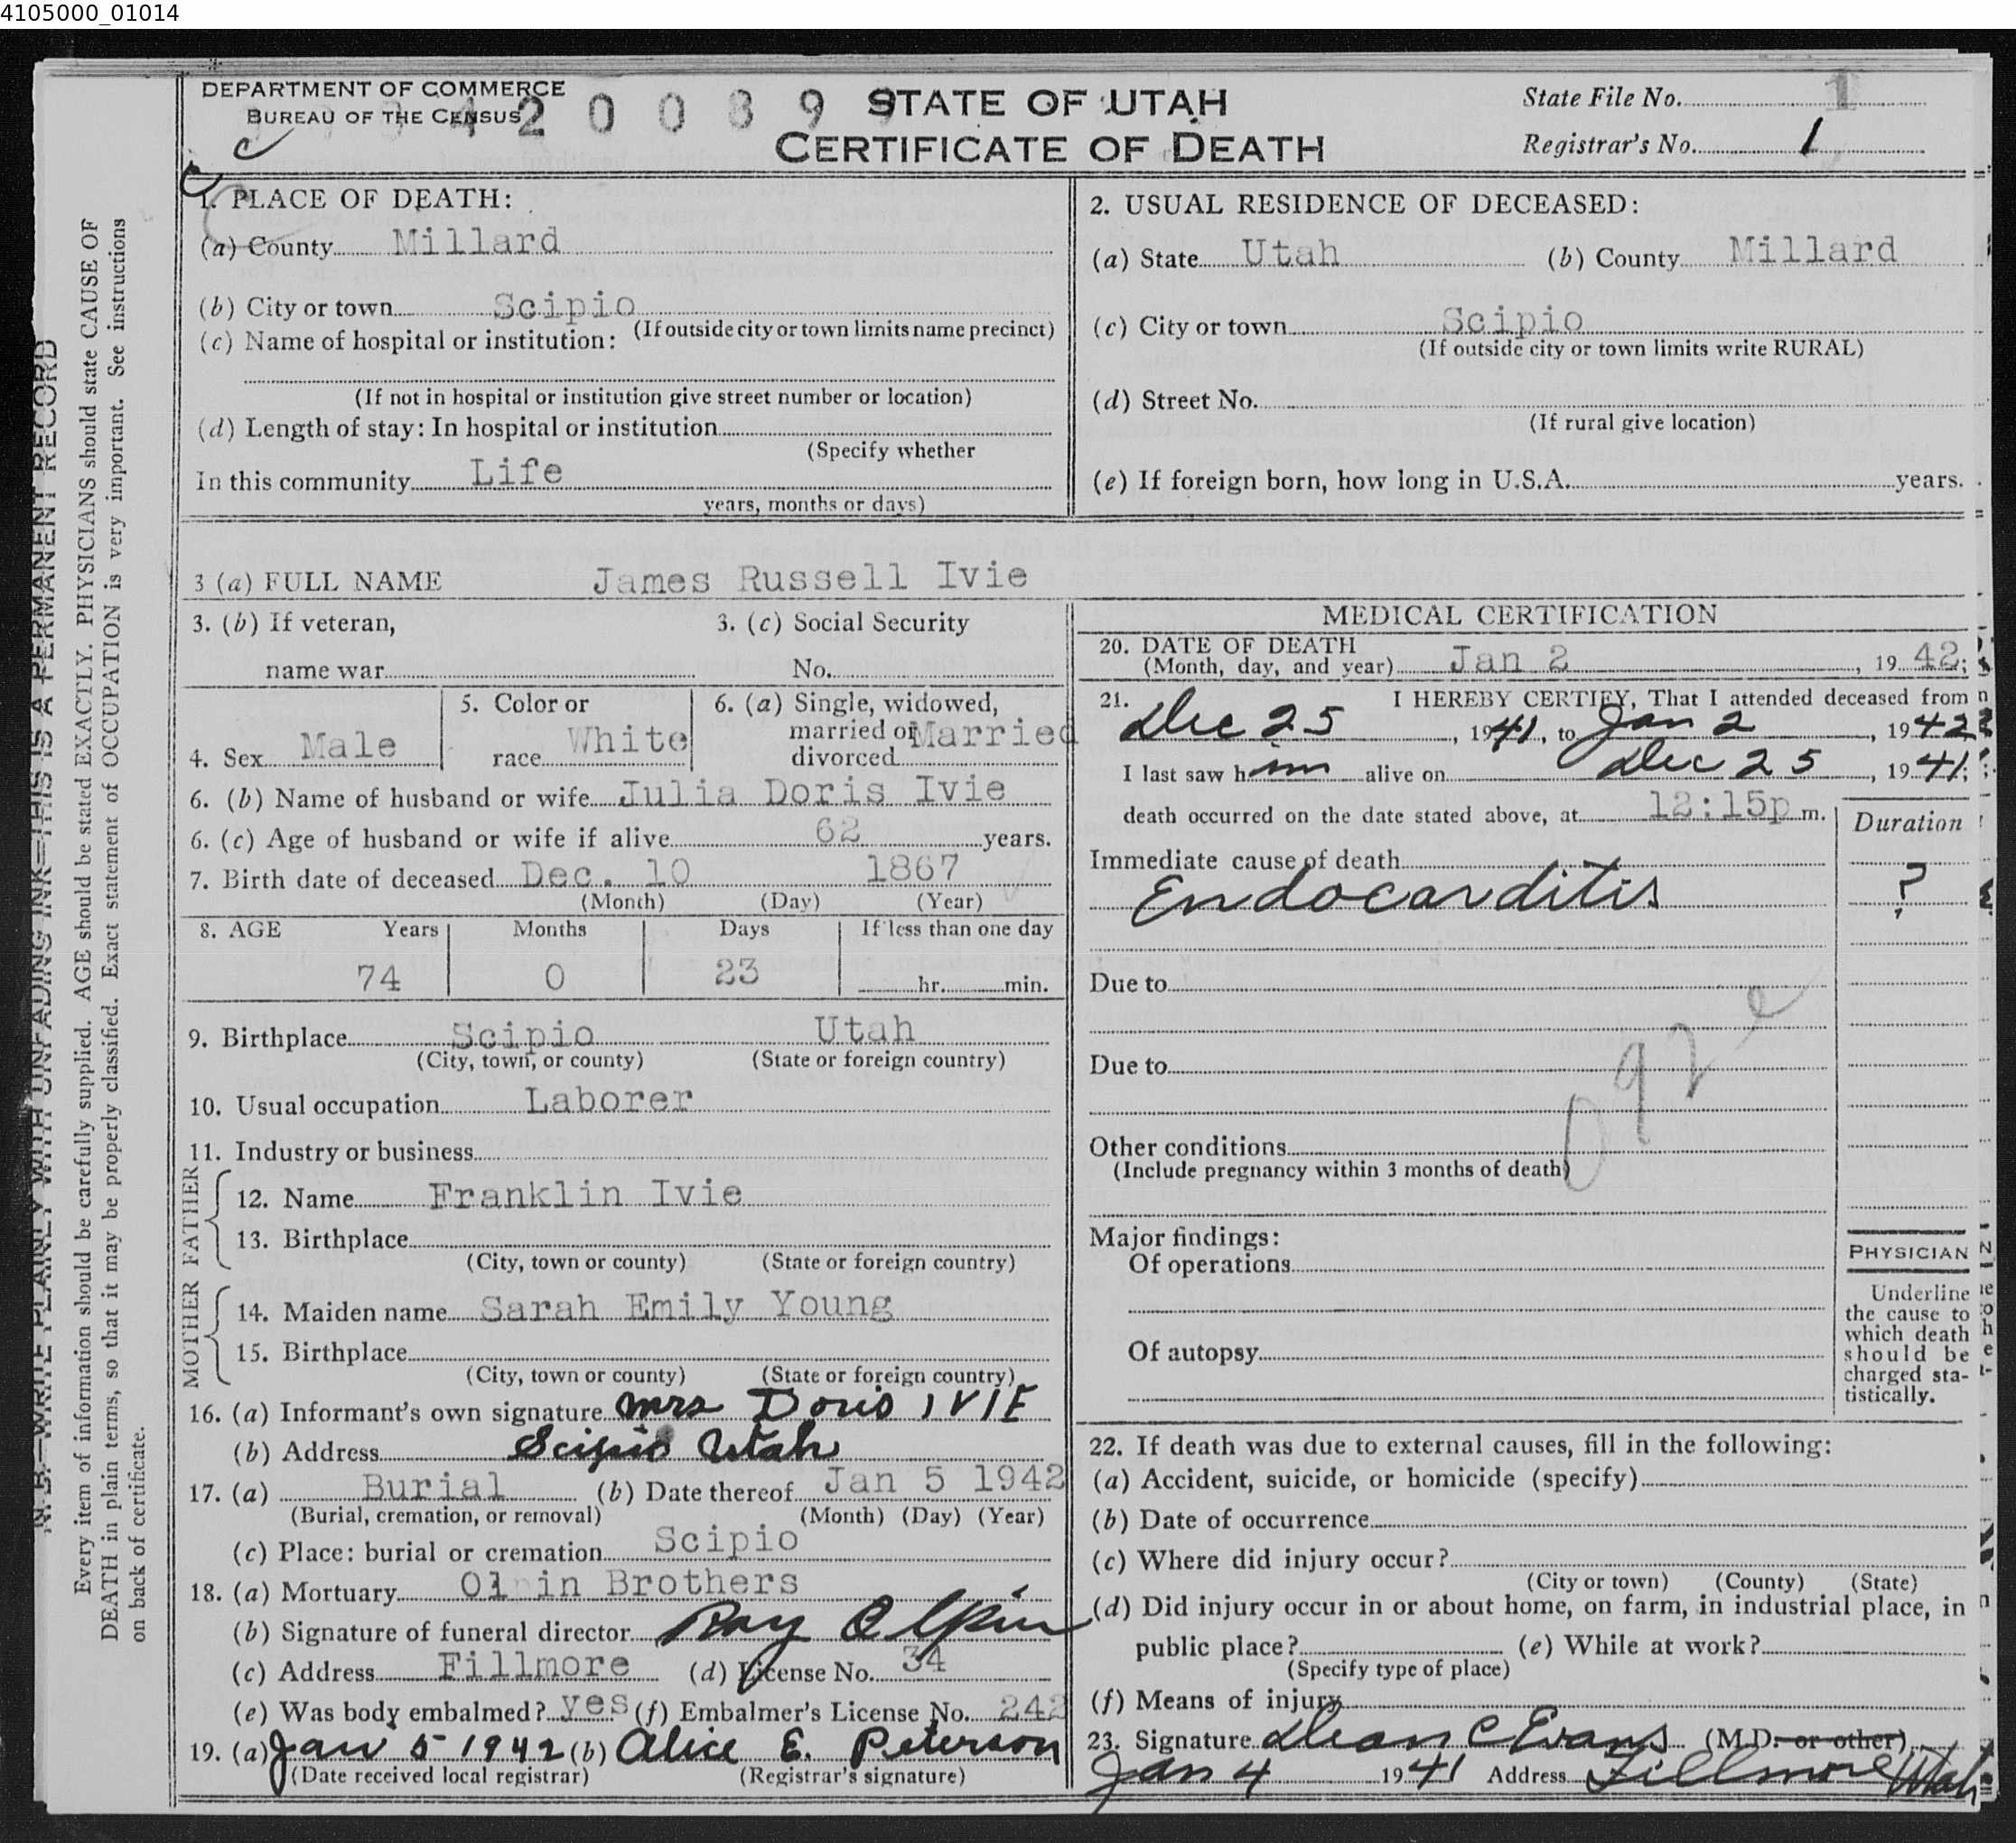 4105000_01014
DEPARTMENT OF COMMERCE
BUREAU OF THE CENSUS
4 2 0 0 8 9 9
STATE OF UTAH
CERTIFICATE OF DEATH
State File No. 1
Registrar's No. 1
N. B.—WRITE PLAINLY WITH UNFADING INK—THIS IS A PERMANENT RECORD
Every item of information should be carefully supplied. AGE should be stated EXACTLY. PHYSICIANS should state CAUSE OF
DEATH in plain terms, so that it may be properly classified. Exact statement of OCCUPATION is very important. See instructions
on back of certificate.
1. PLACE OF DEATH:
(a) County Millard
(b) City or town Scipio
(If outside city or town limits name precinct)
(c) Name of hospital or institution:
(If not in hospital or institution give street number or location)
(d) Length of stay: In hospital or institution
(Specify whether
In this community Life
years, months or days)
2. USUAL RESIDENCE OF DECEASED:
(a) State Utah (b) County Millard
(c) City or town Scipio
(If outside city or town limits write RURAL)
(d) Street No.
(If rural give location)
(e) If foreign born, how long in U.S.A. years.
3 (a) FULL NAME James Russell Ivie
3. (b) If veteran, 3. (c) Social Security
name war No.
4. Sex Male
5. Color or
race White
6. (a) Single, widowed,
married or Married
divorced
6. (b) Name of husband or wife Julia Doris Ivie
6. (c) Age of husband or wife if alive 62 years.
7. Birth date of deceased Dec. 10 1867
(Month) (Day) (Year)
8. AGE Years Months Days If less than one day
74 0 23 hr. min.
9. Birthplace Scipio Utah
(City, town, or county) (State or foreign country)
10. Usual occupation Laborer
11. Industry or business
FATHER
12. Name Franklin Ivie
13. Birthplace
(City, town or county) (State or foreign country)
MOTHER
14. Maiden name Sarah Emily Young
15. Birthplace
(City, town or county) (State or foreign country)
16. (a) Informant's own signature Mrs Doris IVIE
(b) Address Scipio Utah
17. (a) Burial (b) Date thereof Jan 5 1942
(Burial, cremation, or removal) (Month) (Day) (Year)
(c) Place: burial or cremation Scipio
18. (a) Mortuary Ol in Brothers
(b) Signature of funeral director Ray Olpin
(c) Address Fillmore (d) License No. 34
(e) Was body embalmed? yes (f) Embalmer's License No. 242
19. (a) Jan 5 1942 (b) Alice E. Peterson
(Date received local registrar) (Registrar's signature)
MEDICAL CERTIFICATION
20. DATE OF DEATH
(Month, day, and year) Jan 2, 19 42;
21. I HEREBY CERTIFY, That I attended deceased from
Dec 25, 19 41, to Jan 2, 19 42
I last saw him alive on Dec 25, 19 41;
death occurred on the date stated above, at 12:15p m.
Duration
Immediate cause of death
Endocarditis ?
Due to
092 e
Due to
Other conditions
(Include pregnancy within 3 months of death)
Major findings:
Of operations
Of autopsy
PHYSICIAN
Underline
the cause to
which death
should be
charged sta-
tistically.
22. If death was due to external causes, fill in the following:
(a) Accident, suicide, or homicide (specify)
(b) Date of occurrence
(c) Where did injury occur?
(City or town) (County) (State)
(d) Did injury occur in or about home, on farm, in industrial place, in
public place? (e) While at work?
(Specify type of place)
(f) Means of injury
23. Signature Dean C Evans (M.D. or other)
Jan 4 19 41 Address Fillmore Utah